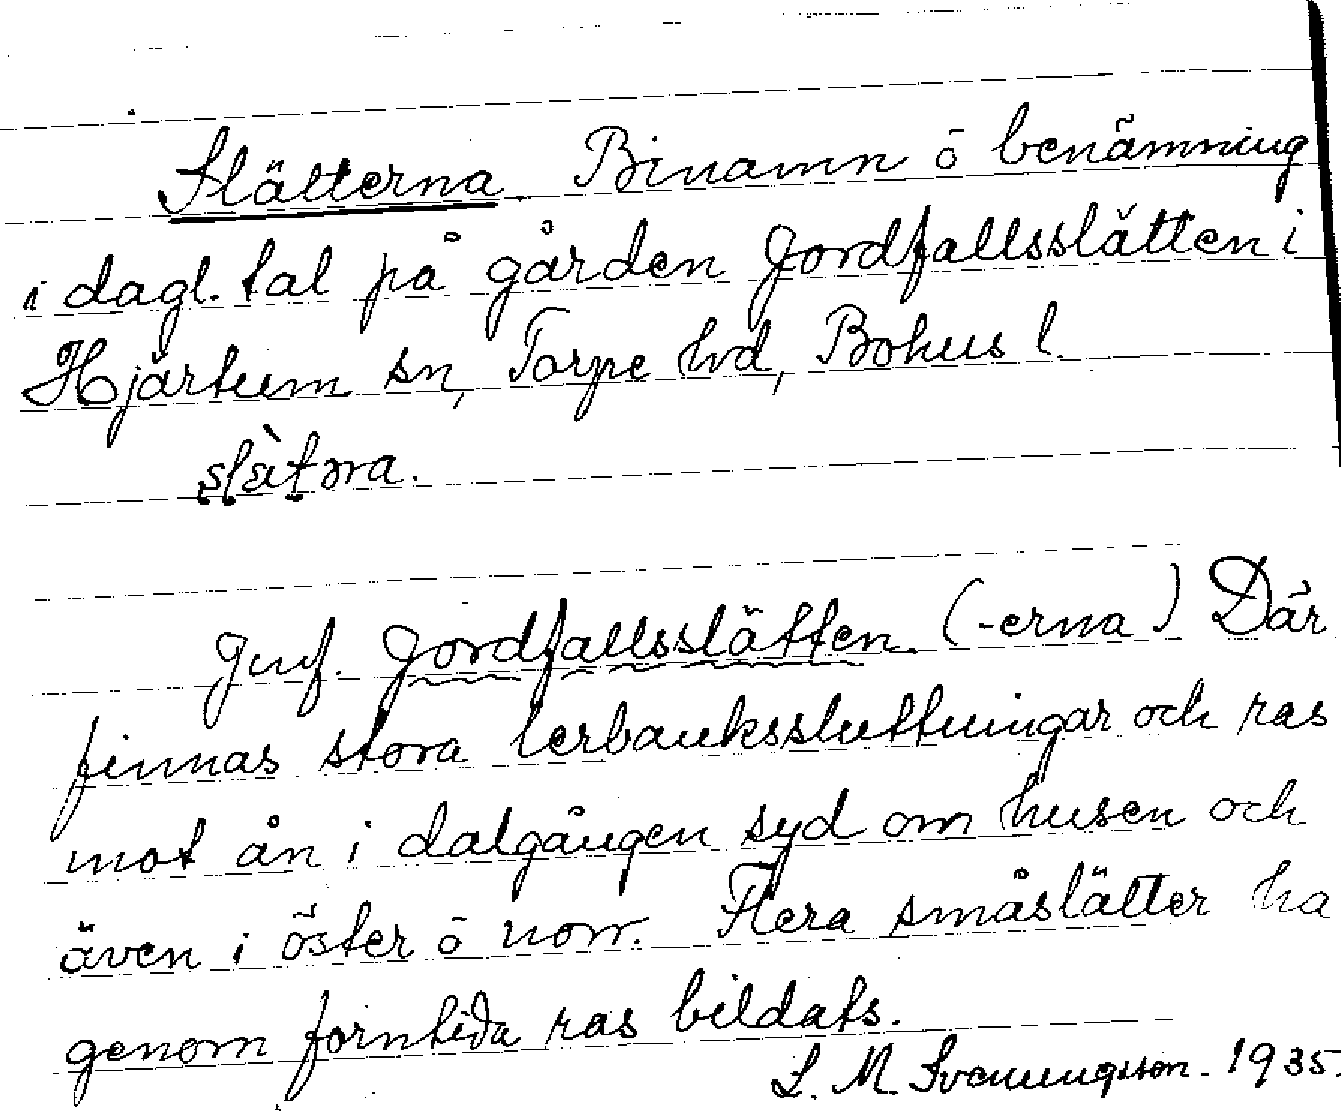 Slätterna. Binamn ō benämning
i dagl. tal på gården Jordfallsslätten i
Hjärtum sn, Torpe hd, Bohus l.
slät ɔra.
Jmf. Jordfallsslätten. (-erna) Där
finnas stora lerbanksslutningar och ras
mot ån i dalgången syd om husen och
även i öster ō norr. Flera småslätter ha
genom forntida ras bildats.
S. M. Svenungsson. 1935.